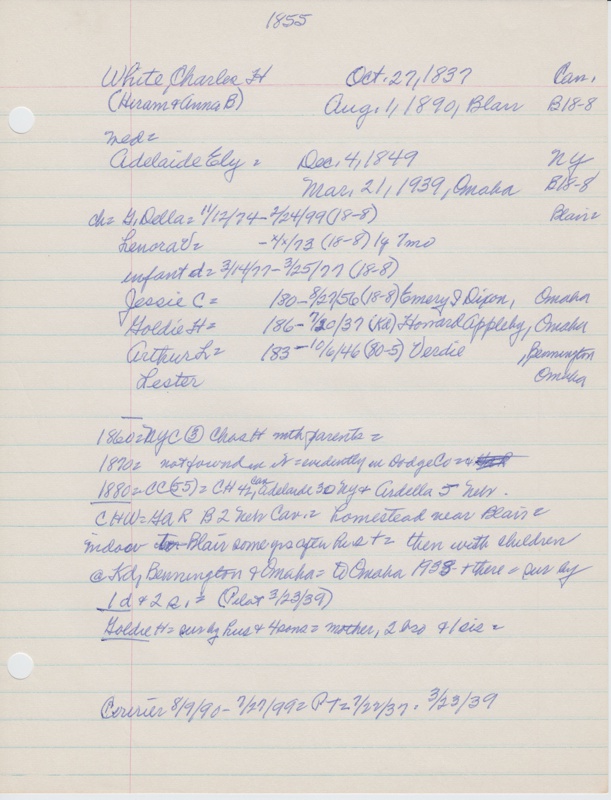 1855
White, Charles H Oct. 27, 1837 Can.
(Hiram & Anna B) Aug. 1, 1890, Blair B18-8
med=
Adelaide Ely = Dec. 4, 1849 NY
Mar. 21, 1939, Omaha B18-8
ch= G. Della= 11/12/74 - 2/24/99 (18-8) Blair=
Lenora V= - 4/x/73 (18-8) 1y 7mo
infant d= 3/14/77 - 3/25/77 (18-8)
Jessie C= 180 - 8/27/56 (18-8) Emery J Dixon, Omaha
Goldie H= 186 - 7/20/37 (Kd) Howard Appleby, Omaha
Arthur L= 183 - 10/6/46 (80-5) Verdie , Bennington
Lester Omaha
1860= NYC (3) Chas H with parents =
1870= not found in N = evidently in Dodge Co
1880= CC (55) = CH 42 Can Adelaide 30 NY & Ardella 5 Neb.
CHW= GAR B 2 Neb Cav. = homestead near Blair =
indoor Blair some yrs after hus + = then with children
@ Kd, Bennington & Omaha = to Omaha 1938 + there = sur by
1 d & 2 s. = (Pilot 3/23/39)
Goldie H= sur by hus & 4 sons = mother, 2 bro & 1 sis =
Courier 8/9/90 - 7/27/99 = PT= 7/22/37 . 3/23/39